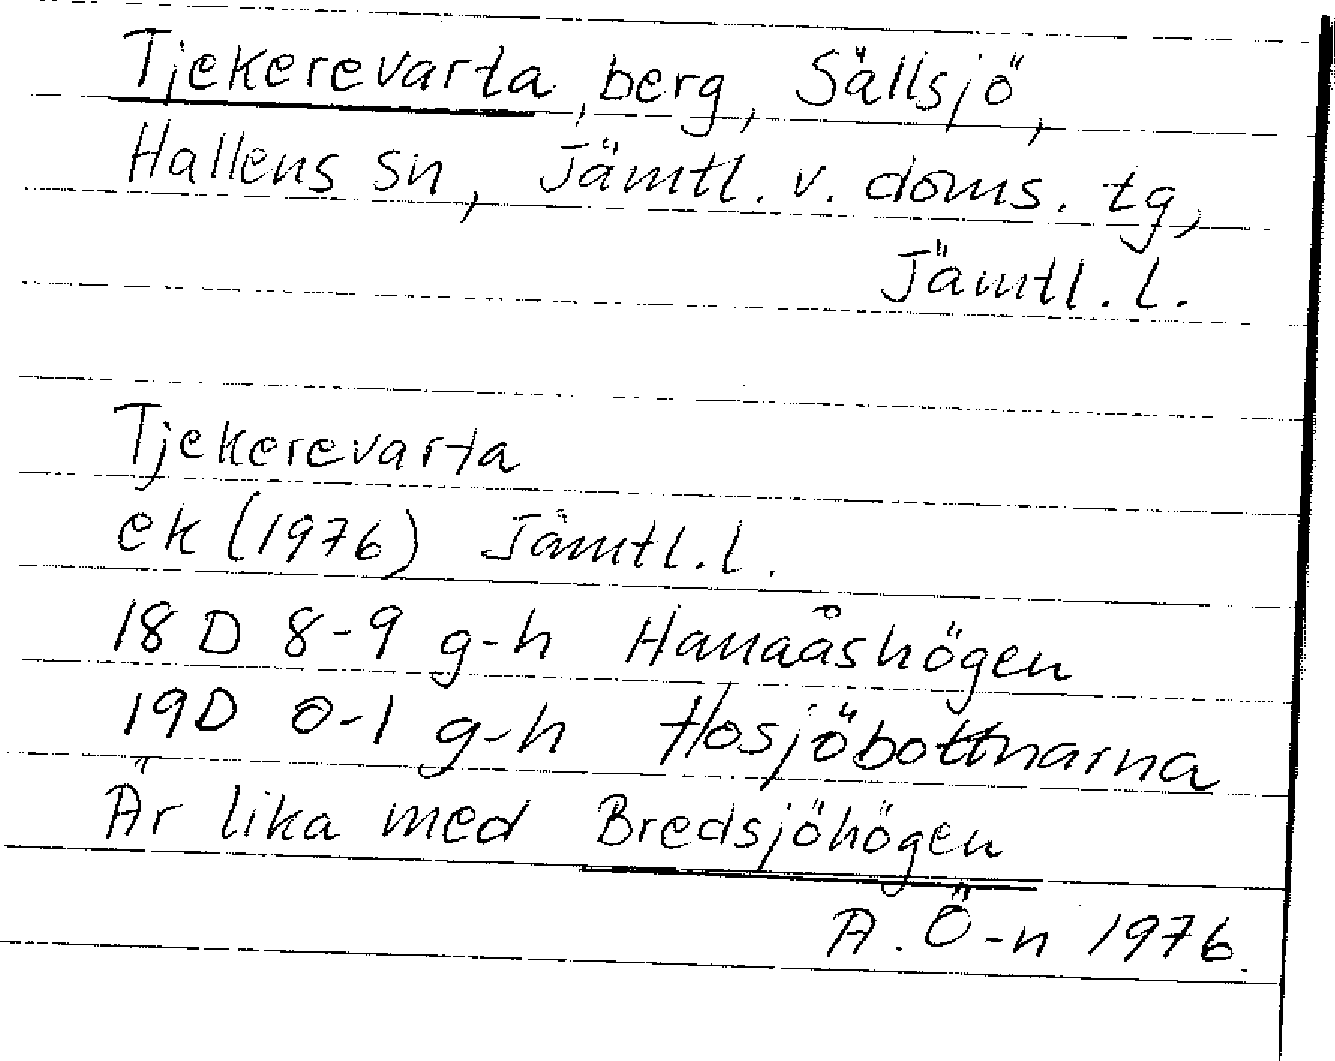 Tjekerevarta, berg, Sällsjö,
Hallens sn, Jämtl. v. doms. tg,
Jämtl. l.
Tjekerevarta
ek (1976) Jämtl. l.
18 D 8-9 g-h Hanaåshögen
19D 0-1 g-h Hosjöbottnarna
Är lika med Bredsjöhögen
A. Ö-n 1976.